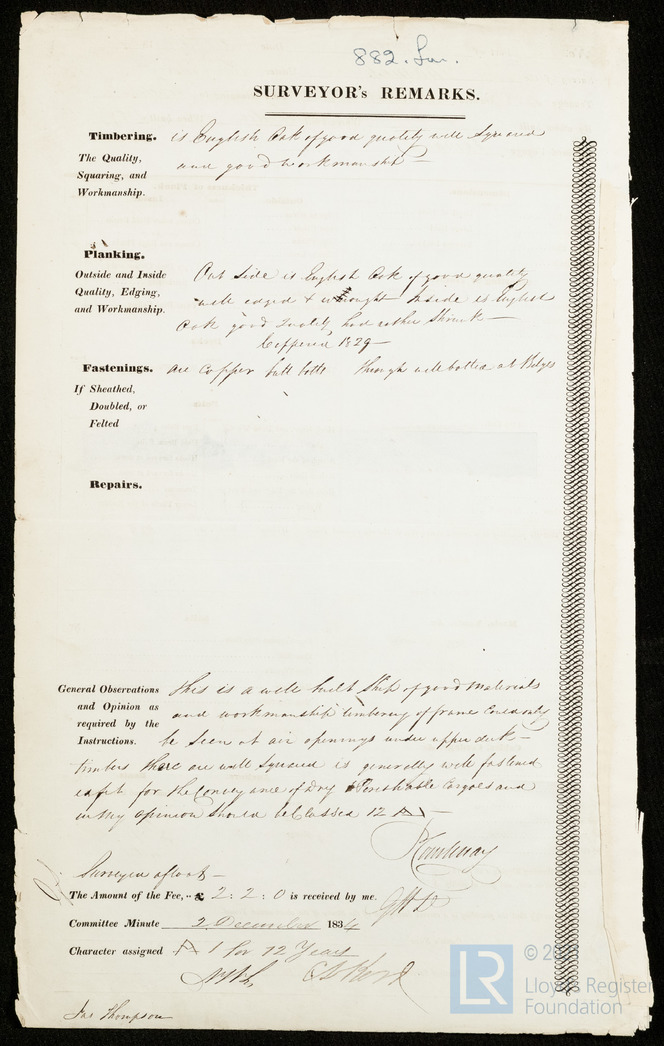 882. Lon.
SURVEYOR's REMARKS.
Timbering. is English Oak of good quality well Squared
The Quality, and good workmanship —
Squaring, and
Workmanship.
Planking.
Outside and Inside Out Side is English Oak of good quality
Quality, Edging, well edged & wrought Inside is English
and Workmanship. Oak good Quality, had rather Shrunk —
Coppered 1829 —
Fastenings. are Copper butt bolts through well bolted at Bilges
If Sheathed,
Doubled, or
Felted
Repairs.
General Observations This is a well built Ship of good Materials
and Opinion as and workmanship timbering of frame Could only
required by the be Seen at air openings under upper deck —
Instructions. timbers there are well Squared is generally well fastened
is fit for the Conveyance of Dry & Perishable Cargoes and
in My Opinion Should be Classed 12 A —
Surveyed afloat —
The Amount of the Fee, -- £ 2 : 2 : 0 is received by me.
Committee Minute 2 December 1834
Character assigned A 1 for 12 Years
Jas Thompson
LR
Lloyd's Register
Foundation